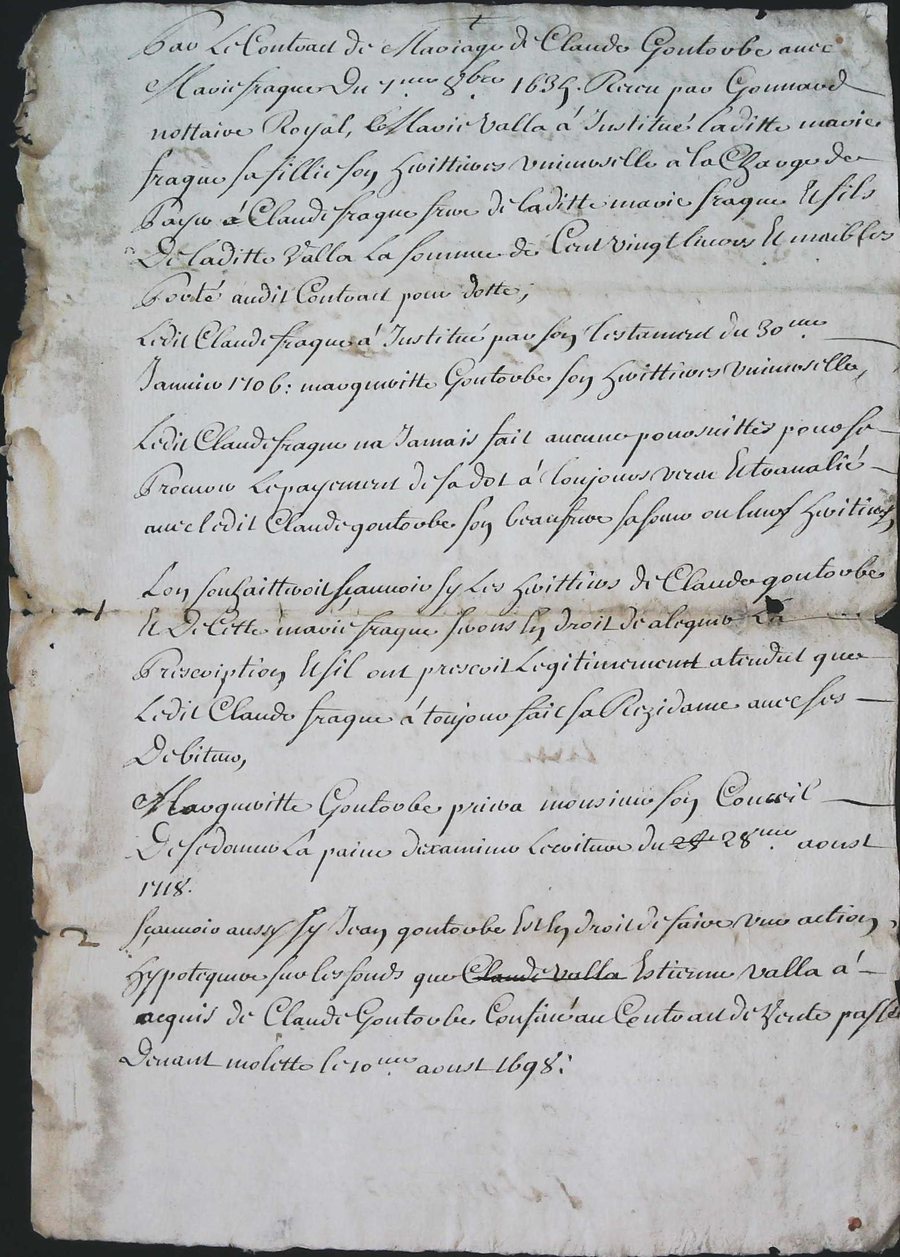 Par Le Contract de Mariage de Claude Goutorbe avec
Marie fraque Du 7.me 8.bre 163 Receu par Gonnard
nottaire Royal, Marie Valla á Institué laditte marie
fraque sa fillie son herittieres universelle a la Charge de
Payer á Claude fraque frere de laditte marie fraque Et fils
De laditte Valla La somme de Cent vingt livres Et meibles
Porté audit Contract pour dotte,
Ledit Claude fraque á Institué par son testament du 30.me
Janvier 1706: margueritte Goutorbe son herittieres universelle,
Ledit Claude fraque na Jamais fait aucune poursuittes pour se
Procurer Le payement de sa dot á toujours vecue Et travalié
avec ledit Claude goutorbe son beaufrere sa soeur ou leurs heritiers
1
Lon souhaitteroit sçavoir sy Les herittiers de Claude goutorbe
Et De Cette marie fraque seront En droit de aleguer La
Prescription, Et sil ont prescrit Legitimement atendut que
Ledit Claude fraque á toujour fait sa Rezidance avec ses
Debiteur,
Marguerittte Goutorbe priera monsieur son Conseil
De se donner La paine dexaminer Lecriture du 28.me aoust
1718.
2
sçavoir aussy sy Jean goutorbe Est En droit de faire une action
hypotequere sur les fonds que Claude Valla Estienne valla á
acquis de Claude Goutorbe Confiné au Contract de Vente passé
Devant molette le 10.me aoust 1698: